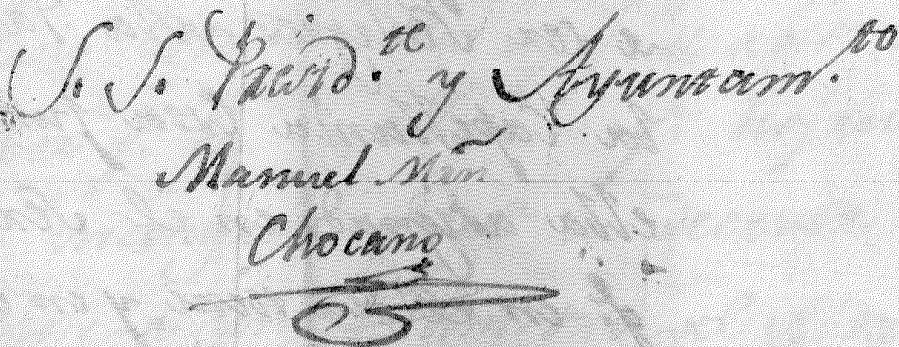 S. S. Presid.te y Ayuntam.to
Manuel Mrn
Chocano